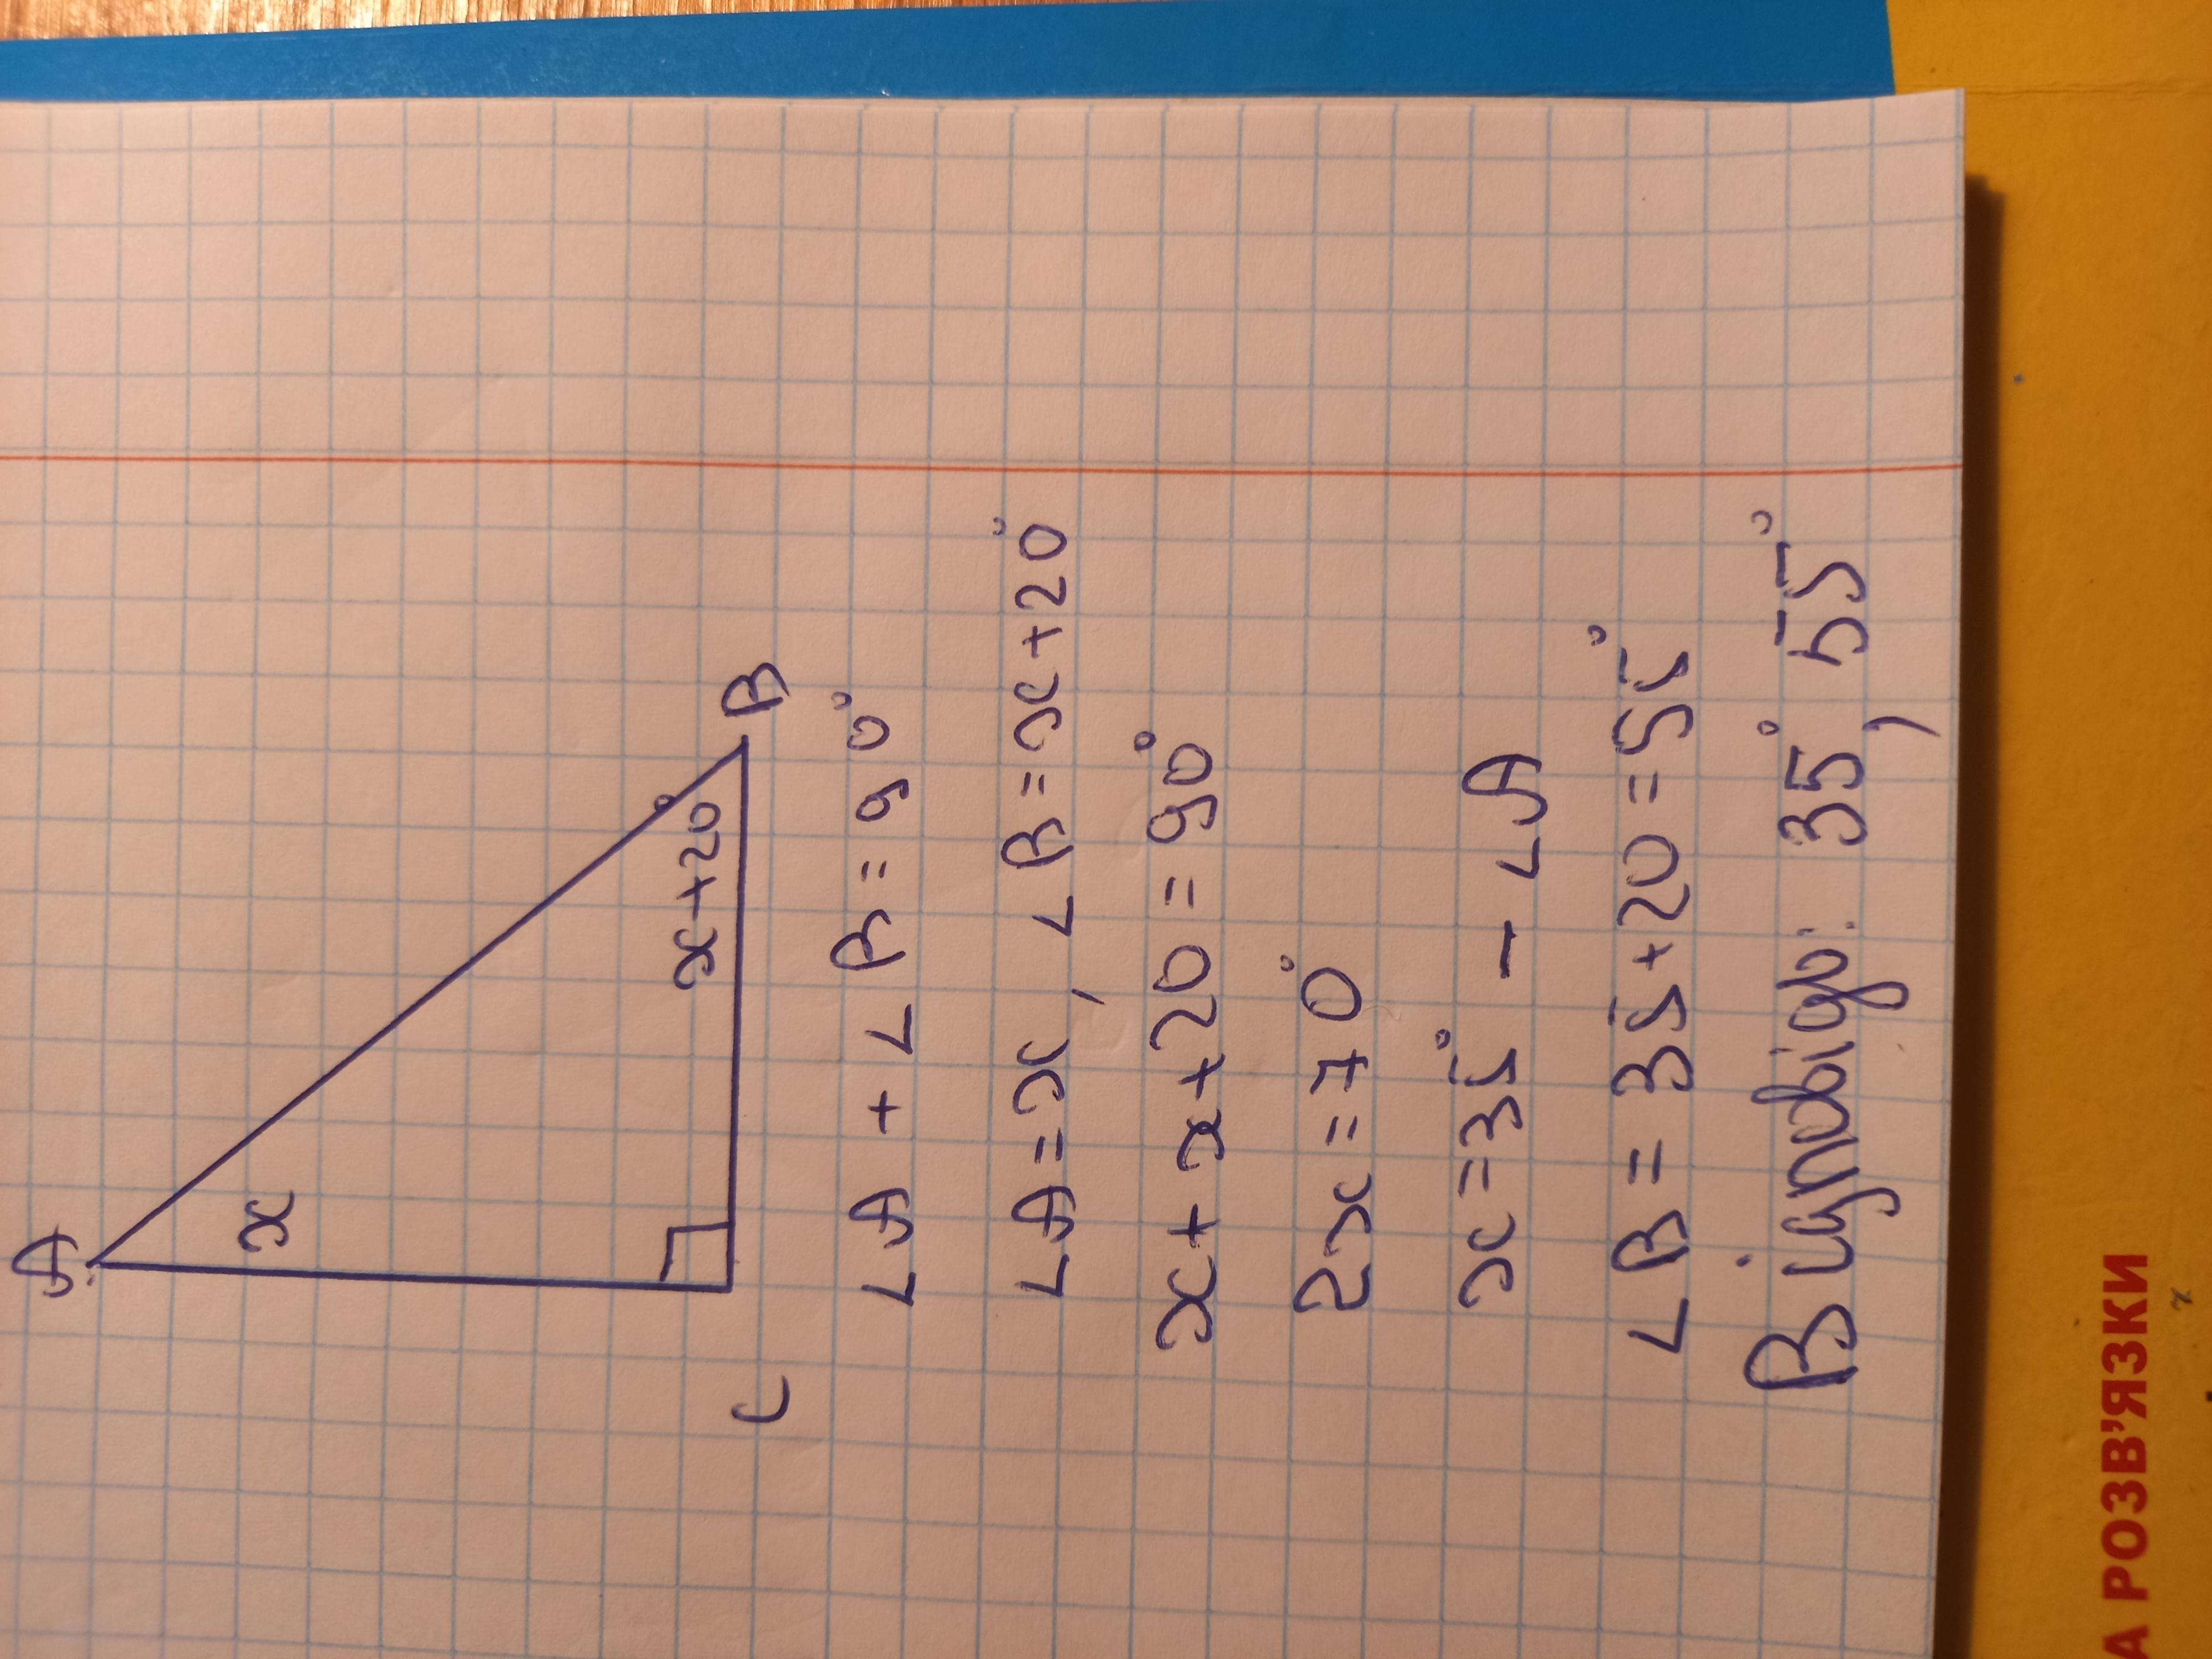 A
x
x+20°
C
B
∠A + ∠B = 90°
∠A = x, ∠B = x+20°
x + x+20 = 90°
2x = 70°
x = 35° – ∠A
∠B = 35+20 = 55°
Відповідь: 35°, 55°
А РОЗВ'ЯЗКИ